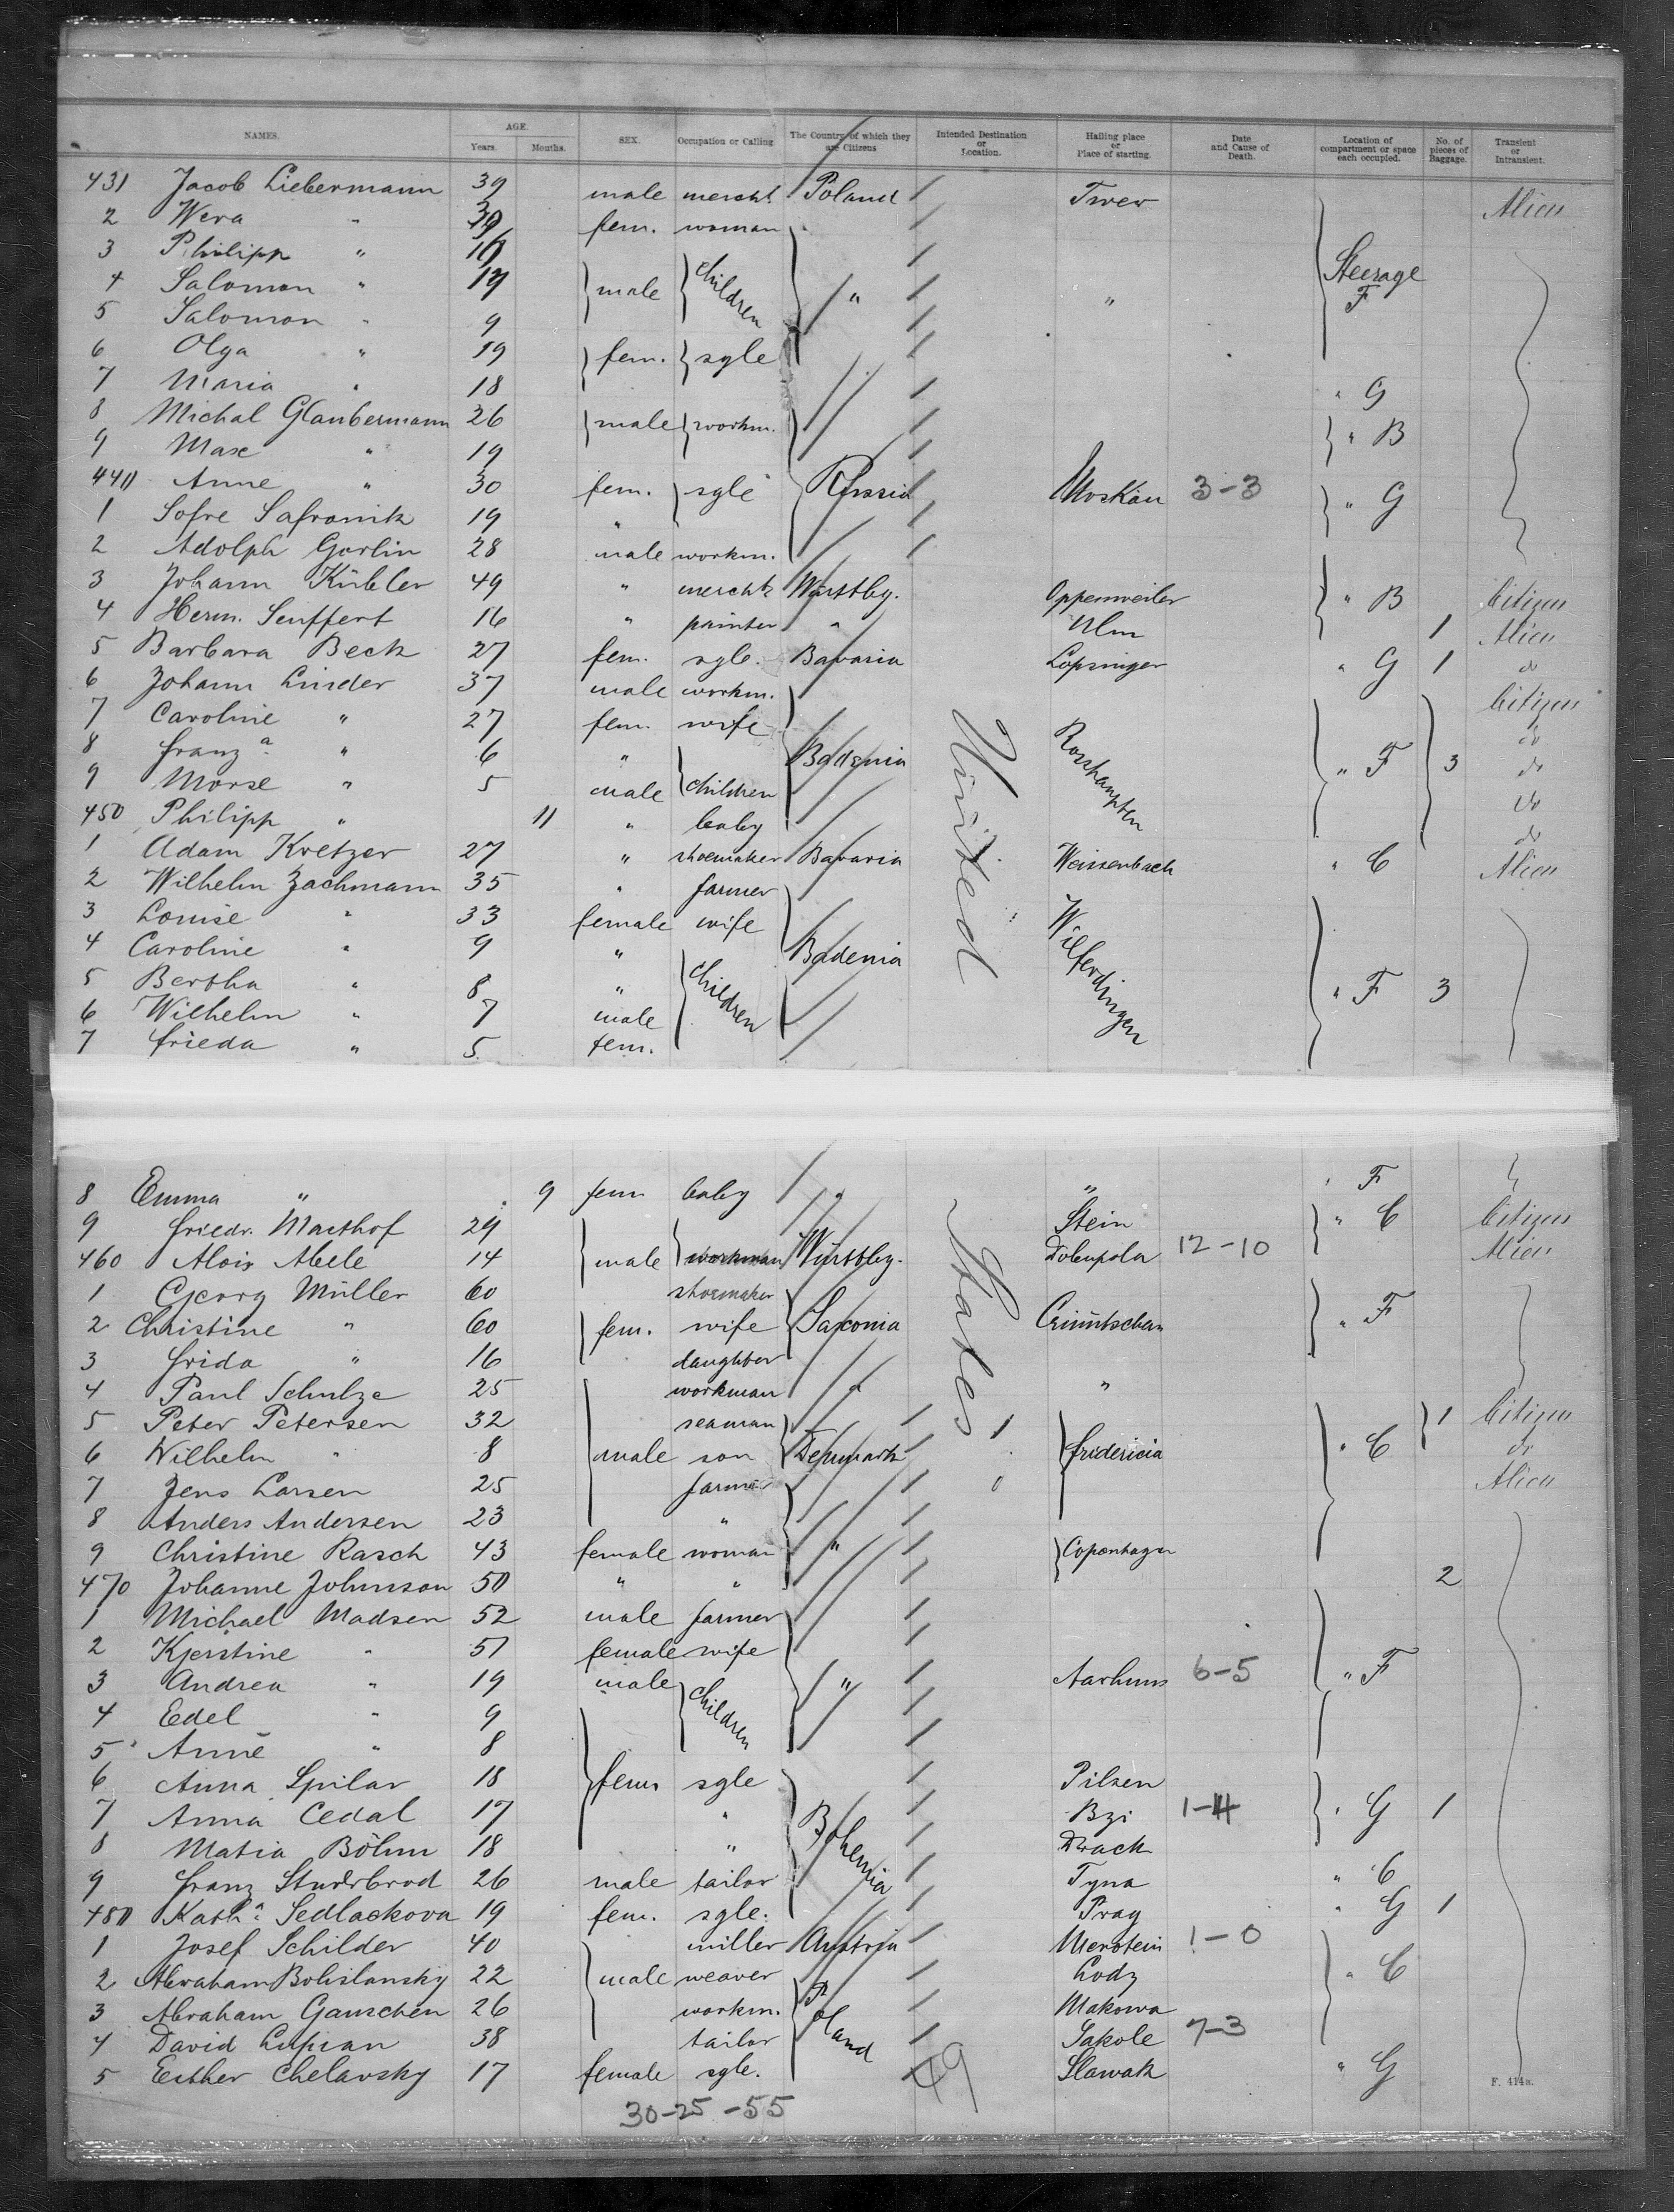 NAMES. AGE. Years. Months. SEX. Occupation or Calling The Country of which they are Citizens Intended Destination or Location. Hailing place or Place of starting. Date and Cause of Death. Location of compartment or space each occupied. No. of pieces of Baggage. Transient or Intransient.
431 Jacob Liebermann 39 male mercht Poland Twer Alien
2 Wera " fem. woman
3 Philipp " Steerage
4 Salomon " male children " " F
5 Salomon " 9
6 Olga " 19 fem. sgle
7 Maria " 18 " G
8 Michal Glaubermann 26 male workm. " B
9 Max " 19
440 Anne " 30 fem. sgle Russia Moskau 3-3 " G
1 Sofre Safronik 19 "
2 Adolph Gorlin 28 male workm.
3 Johann Kübler 49 " mercht Württbg. Oppenweiler " B Citizen
4 Herm. Seuffert 16 " painter " Ulm 1 Alien
5 Barbara Beck 27 fem. sgle. Bavaria Lopsinger " G 1 do
6 Johann Linder 37 male workm. Citizen
7 Caroline " 27 fem. wife do
8 Franza " 6 " Badenia " F 3 do
9 Morse " 5 male children do
450 Philipp " 11 " baby do
1 Adam Kretzer 27 " shoemaker Bavaria Weissenbach " C Alien
2 Wilhelm Zachmann 35 " farmer
3 Louise " 33 female wife Wilferdingen
4 Caroline " 9 " Badenia
5 Bertha " 8 " children " F 3
6 Wilhelm " 7 male
7 Frieda " 5 fem.
United States
8 Emma " 9 fem baby " " " F
9 Friedr. Masthof 29 Stein " C Citizen
460 Alois Abele 14 male workman Württbg. 12-10 Alien
1 Georg Müller 60 shoemaker
2 Christine " 60 fem. wife Saxonia " F
3 Frida " 16 daughter
4 Paul Schulze 25 workman " "
5 Peter Petersen 32 seaman 1 Citizen
6 Wilhelm " 8 male son Denmark Fridericia " C do
7 Jens Larsen 25 farmer Alien
8 Anders Andersen 23 "
9 Christine Rasch 43 female woman " Copenhagen
470 Johanne Johnson 50 " " 2
1 Michael Madsen 52 male farmer
2 Kjerstine " 51 female wife
3 Andrea " 19 male children " Aarhuus 6-5 " F
4 Edel " 9
5 Anne " 8
6 Anna Spilar 18 fem sgle Pilsen
7 Anna Cedal 17 " Bohemia Bzi 1-4 " G 1
8 Matia Böhm 18 " Drack
9 Franz 26 male tailor Tyna " C
480 Katha Sedlackova 19 fem. sgle. Prag " G 1
1 Josef Schilder 40 miller Austria 1-0
2 Abraham Bolislansky 22 male weaver Poland Lodz " C
3 Abraham Ganschen 26 workm. Makowa
4 David Lupian 38 tailor Sakole 7-3
5 Esther Chelavsky 17 female sgle. Slawak " G
F. 414a.
30-25-55